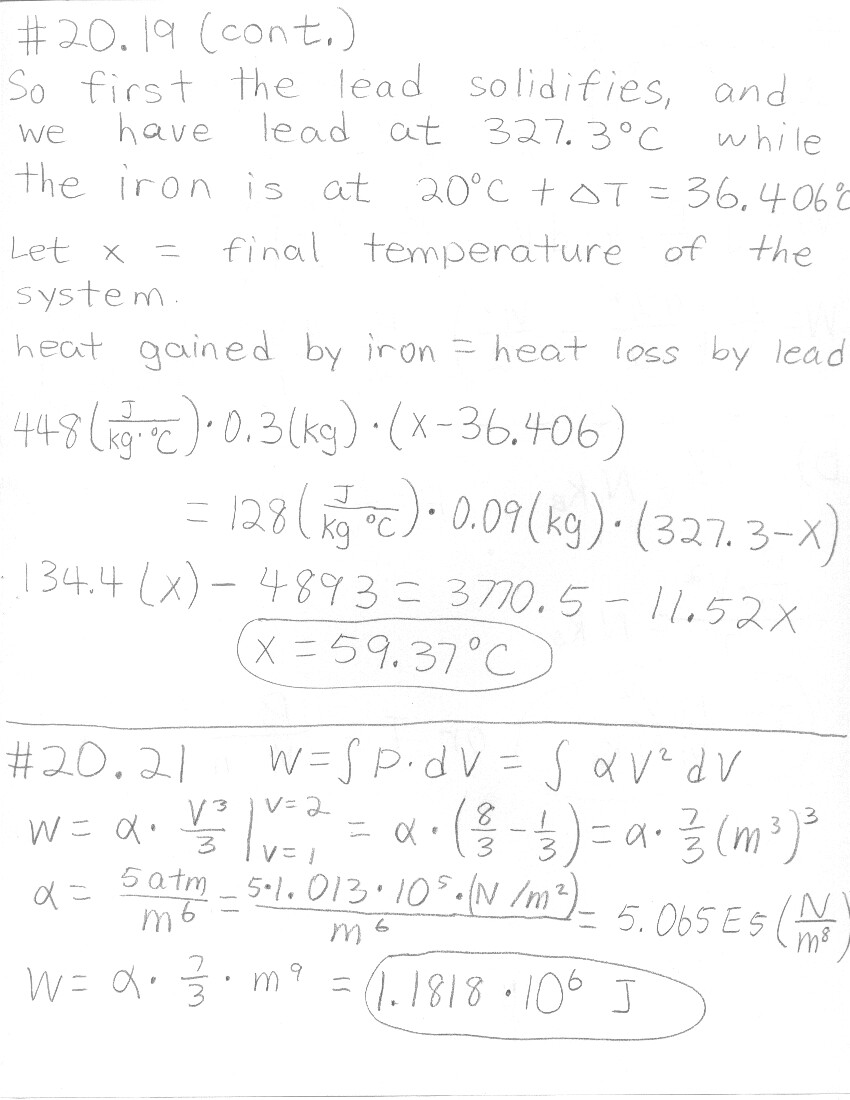 #20.19 (cont.)
So first the lead solidifies, and
we have lead at 327.3°C while
the iron is at 20°C + ΔT = 36.406°C
Let x = final temperature of the
system.
heat gained by iron = heat loss by lead
448(J/kg·°C)·0.3(kg)·(x-36.406)
= 128(J/kg °C)·0.09(kg)·(327.3-x)
134.4(x) - 4893 = 3770.5 - 11.52x
x = 59.37°C
#20.21 W = ∫ P·dV = ∫ αV² dV
W = α· V³/3 |V=2 V=1 = α·(8/3 - 1/3) = α· 7/3 (m³)³
α = 5atm/m⁶ = 5·1.013·10⁵·(N/m²)/m⁶ = 5.065E5(N/m⁸)
W = α· 7/3 · m⁹ = 1.1818·10⁶ J